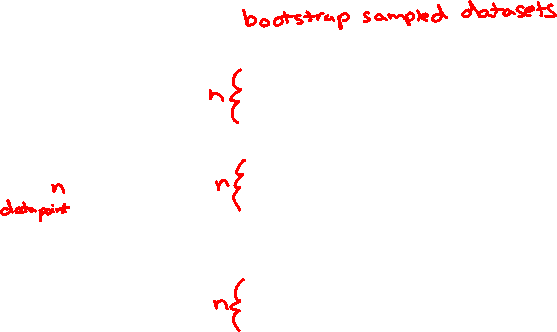 bootstrap sampled datasets
n {
n {
n
datapoint
n {